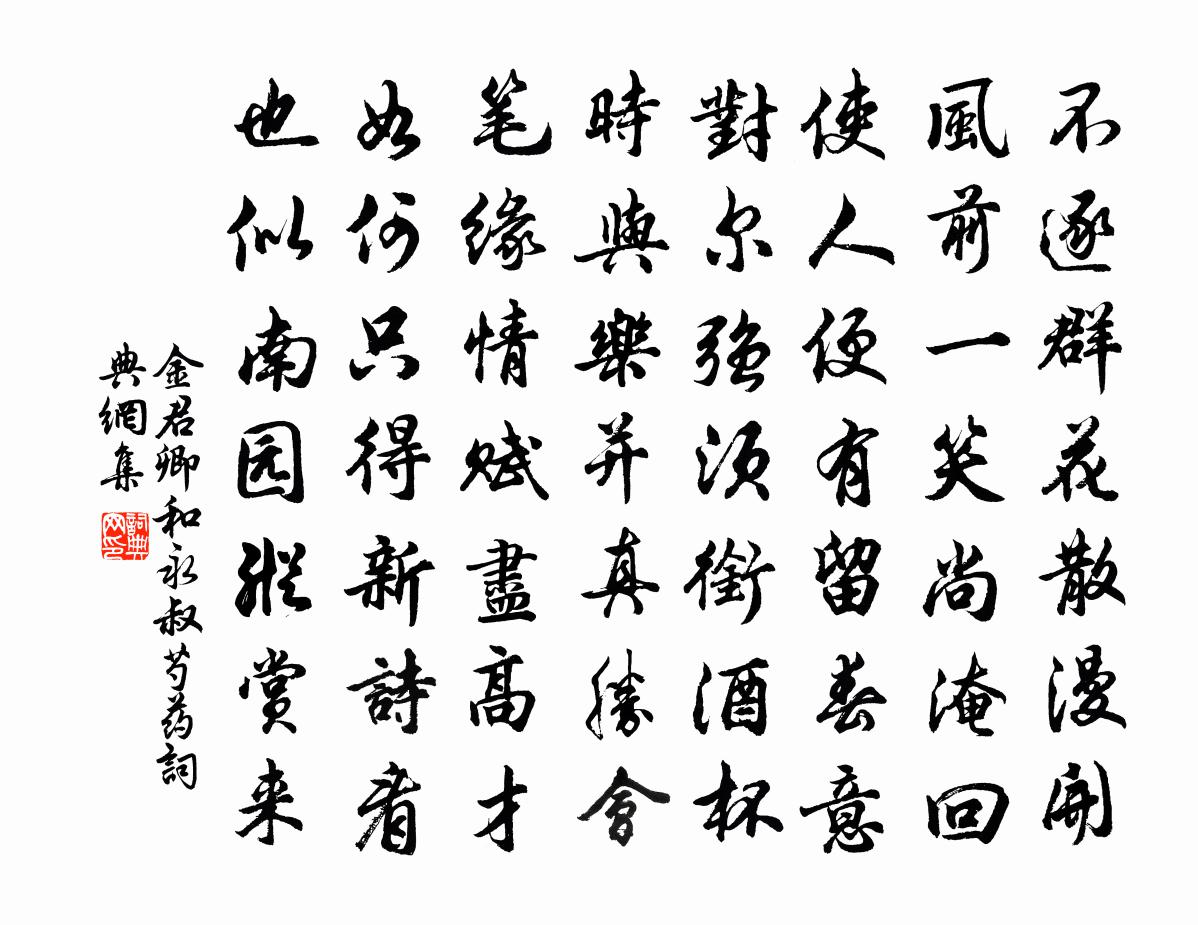 不逐群花散漫開
風前一笑尚淹回
使人便有留春意
對尔強須銜酒杯
時與樂并真勝會
笔緣情賦盡高才
如何只得新詩看
也似南园縱賞来
金君卿和永叔芍药詞
典網集
詞典网印